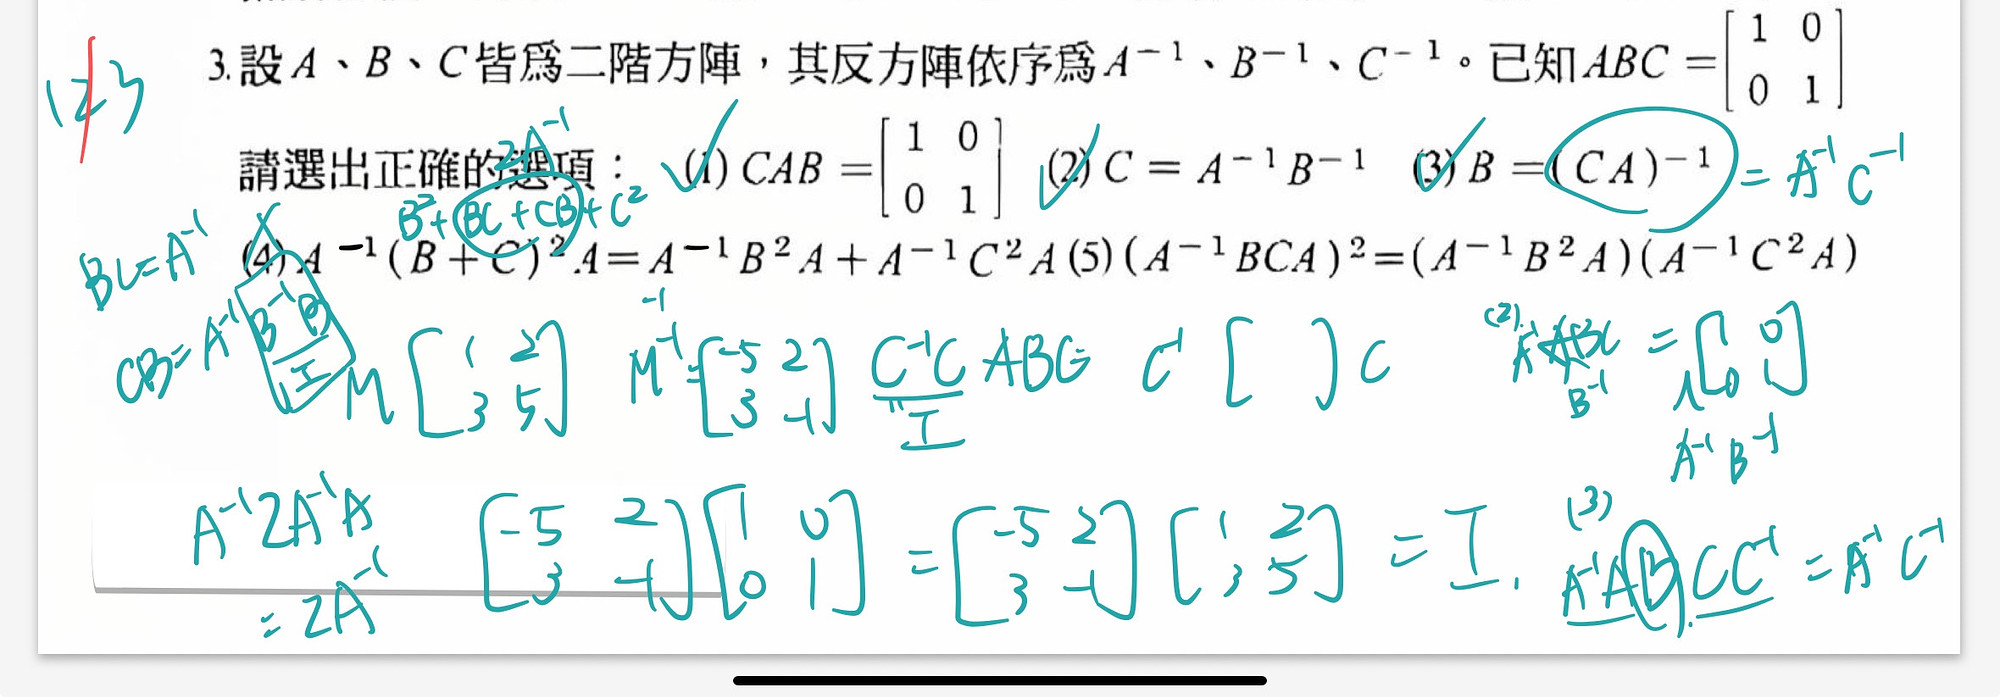 3. 設 A、B、C 皆為二階方陣，其反方陣依序為 A⁻¹、B⁻¹、C⁻¹。已知 ABC = [1 0; 0 1]
123
請選出正確的選項： (1) CAB = [1 0; 0 1] (2) C = A⁻¹B⁻¹ (3) B = (CA)⁻¹ = A⁻¹C⁻¹
2A⁻¹
B²+BC+CB+C²
(4) A⁻¹(B+C)²A = A⁻¹B²A + A⁻¹C²A (5) (A⁻¹BCA)² = (A⁻¹B²A)(A⁻¹C²A)
BC=A⁻¹
CB=A⁻¹B⁻¹B
I
M [1 2; 3 5] M⁻¹ = [-5 2; 3 -1]⁻¹ C⁻¹C ABC C⁻¹ [ ] C
I
(2). A⁻¹ABC = [1 0; 0 1]
B⁻¹
A⁻¹B⁻¹
A⁻¹2A⁻¹A
= 2A⁻¹
[-5 2; 3 -1] [1 0; 0 1] = [-5 2; 3 -1] [1 2; 3 5] = I.
(3)
A⁻¹ABCC⁻¹ = A⁻¹C⁻¹